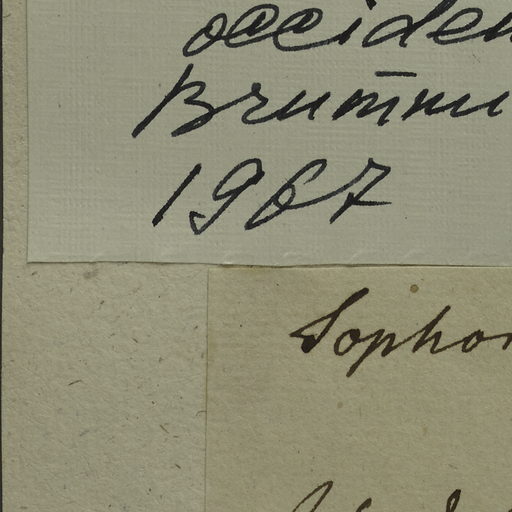 occiden
Brummi
1967
Sophor